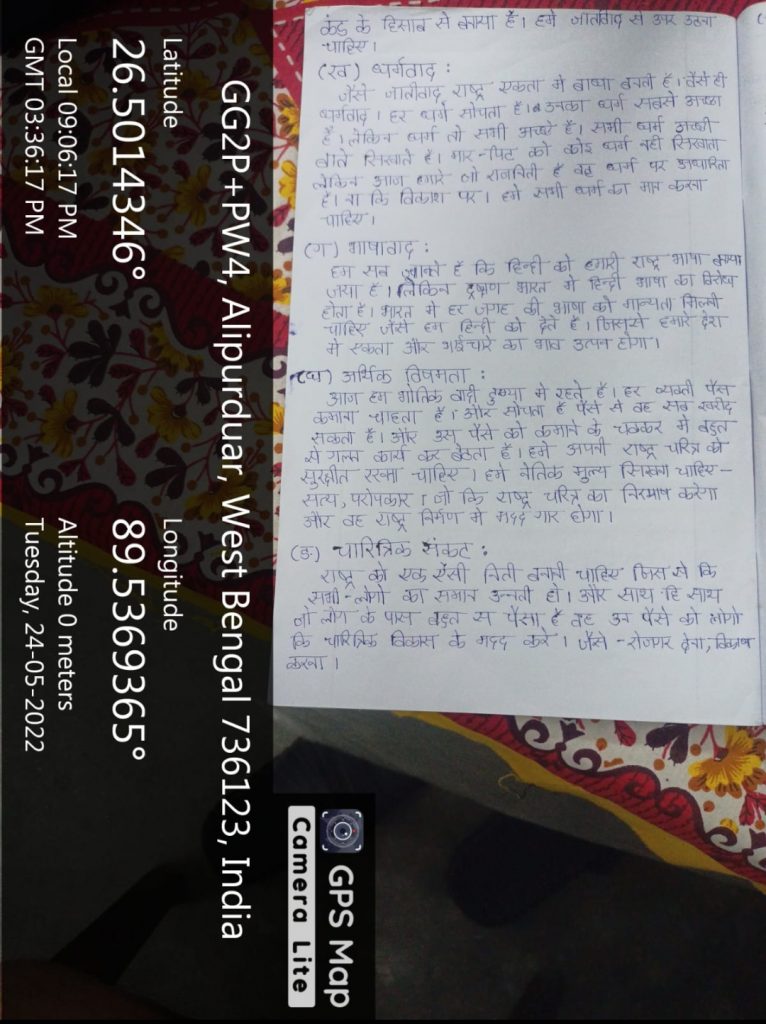 कंड के हिसाब से बनाया है। हमे जातीवाद से उपर उठना
चाहिए।
(रव) ध्यर्मवाद :
जैसे जातीवाद राष्ट्र एकता मे बाधा बनती है। वैसे ही
धर्मवाद। हर धर्म सोचता है। उनका धर्म सबसे अच्छा
है। लेकिन धर्म तो सभी अच्छे है। सभी धर्म अच्छी
बाते सिखाते है। मार-पिट को कोइ धर्म नही सिखाता
लेकिन आज हमारे जो राजनिती है वह धर्म पर आधारित
है। ना कि विकाश पर। हमे सभी धर्म का मान करना
चाहिए।
(ग) भाषावाद :
हम सब जानते है कि हिन्दी को हमारी राष्ट्र भाषा बनाया
गया है। लेकिन दक्षिण भारत मे हिन्दी भाषा का विरोध
होता है। भारत मे हर जगह की भाषा को मान्यता मिलनी
चाहिए जैसे हम हिन्दी को देते है। जिससे हमारे देश
मे एकता और भईचारे का भाव उत्पन होगा।
(घ) आर्थिक विषमता :
आज हम भौतिक वादी दुन्या मे रहते है। हर व्यक्ती पैसा
कमाना चाहता है। और सोचता है पैसे से वह सब खरीद
सकता है। और उस पैसे को कमाने के चक्कर मे बहुत
से गलत कार्य कर बैठता है। हमे अपनी राष्ट्र चरित्र को
सुरक्षीत रखना चाहिए। हमे नेतिक मुल्य सिखना चाहिए-
सत्य, परोपकार। जो कि राष्ट्र चरित्र का निरमाण करेगा
और वह राष्ट्र निर्मण मे मदद गार होगा।
(ङ) चारित्रिक संकट :
राष्ट्र को एक ऐसी निती बनानी चाहिए जिस से कि
सभी-लोगो का समान उन्नती हो। और साथ हि साथ
जो लोग के पास बहुत स पैसा है वह उन पैसे को लोगो
कि चारित्रिक विकास के मदद करे। जैसे -रोजगर देना,
करना।
GG2P+PW4, Alipurduar, West Bengal 736123, India
Latitude
26.5014346°
Longitude
89.5369365°
Local 09:06:17 PM
GMT 03:36:17 PM
Altitude 0 meters
Tuesday, 24-05-2022
GPS Map
Camera Lite